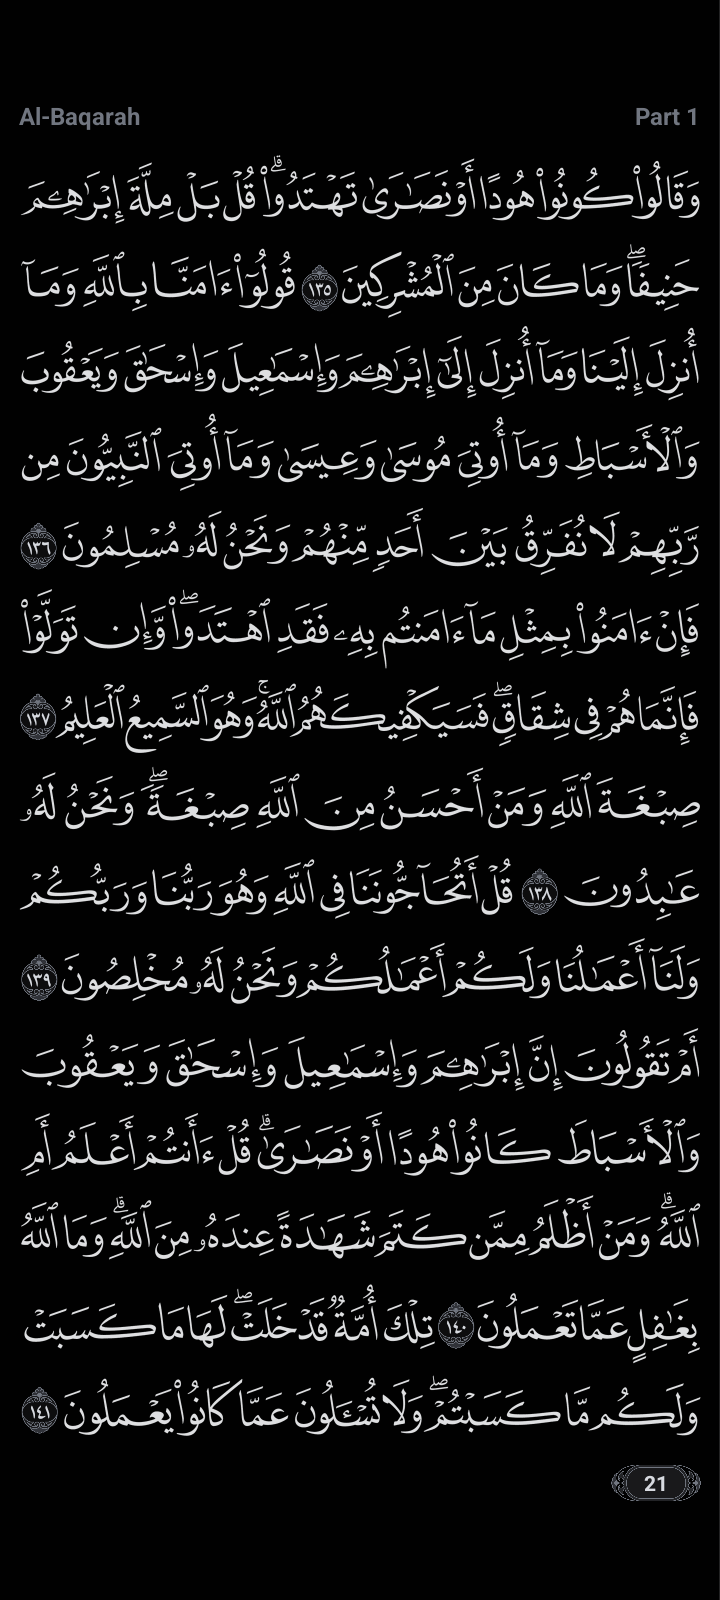 Al-Baqarah Part 1
وَقَالُوا۟ كُونُوا۟ هُودًا أَوْ نَصَـٰرَىٰ تَهْتَدُوا۟ ۗ قُلْ بَلْ مِلَّةَ إِبْرَٰهِـۧمَ
حَنِيفًا ۖ وَمَا كَانَ مِنَ ٱلْمُشْرِكِينَ ١٣٥ قُولُوٓا۟ ءَامَنَّا بِٱللَّهِ وَمَآ
أُنزِلَ إِلَيْنَا وَمَآ أُنزِلَ إِلَىٰٓ إِبْرَٰهِـۧمَ وَإِسْمَـٰعِيلَ وَإِسْحَـٰقَ وَيَعْقُوبَ
وَٱلْأَسْبَاطِ وَمَآ أُوتِىَ مُوسَىٰ وَعِيسَىٰ وَمَآ أُوتِىَ ٱلنَّبِيُّونَ مِن
رَّبِّهِمْ لَا نُفَرِّقُ بَيْنَ أَحَدٍ مِّنْهُمْ وَنَحْنُ لَهُۥ مُسْلِمُونَ ١٣٦
فَإِنْ ءَامَنُوا۟ بِمِثْلِ مَآ ءَامَنتُم بِهِۦ فَقَدِ ٱهْتَدَوا۟ ۖ وَّإِن تَوَلَّوْا۟
فَإِنَّمَا هُمْ فِى شِقَاقٍ ۖ فَسَيَكْفِيكَهُمُ ٱللَّهُ ۚ وَهُوَ ٱلسَّمِيعُ ٱلْعَلِيمُ ١٣٧
صِبْغَةَ ٱللَّهِ وَمَنْ أَحْسَنُ مِنَ ٱللَّهِ صِبْغَةً ۖ وَنَحْنُ لَهُۥ
عَـٰبِدُونَ ١٣٨ قُلْ أَتُحَآجُّونَنَا فِى ٱللَّهِ وَهُوَ رَبُّنَا وَرَبُّكُمْ
وَلَنَآ أَعْمَـٰلُنَا وَلَكُمْ أَعْمَـٰلُكُمْ وَنَحْنُ لَهُۥ مُخْلِصُونَ ١٣٩
أَمْ تَقُولُونَ إِنَّ إِبْرَٰهِـۧمَ وَإِسْمَـٰعِيلَ وَإِسْحَـٰقَ وَيَعْقُوبَ
وَٱلْأَسْبَاطَ كَانُوا۟ هُودًا أَوْ نَصَـٰرَىٰ ۗ قُلْ ءَأَنتُمْ أَعْلَمُ أَمِ
ٱللَّهُ ۗ وَمَنْ أَظْلَمُ مِمَّن كَتَمَ شَهَـٰدَةً عِندَهُۥ مِنَ ٱللَّهِ ۗ وَمَا ٱللَّهُ
بِغَـٰفِلٍ عَمَّا تَعْمَلُونَ ١٤٠ تِلْكَ أُمَّةٌ قَدْ خَلَتْ ۖ لَهَا مَا كَسَبَتْ
وَلَكُم مَّا كَسَبْتُمْ ۖ وَلَا تُسْـَٔلُونَ عَمَّا كَانُوا۟ يَعْمَلُونَ ١٤١
21